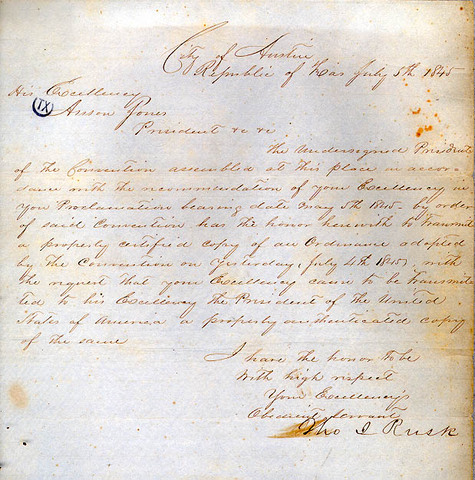 City of Austin
Republic of Texas July 5th 1845
His Excellency
TX
Anson Jones
President &c &c
The Undersigned President
of the Convention assembled at this place in accor-
dance with the recommendation of your Excellency in
your Proclamation bearing date May 5th 1845- by order
of said Convention has the honor herewith to Transmit
a properly certified copy of an Ordinance adopted
by the Convention on Yesterday, July 4th 1845, with
the request that your Excellency cause to be Transmit
ted to his Excellency the President of the United
States of America a properly authenticated copy
of the same
I have the honor To be
With high respect
Your Excellency's
Obedient Servant
Tho J Rusk